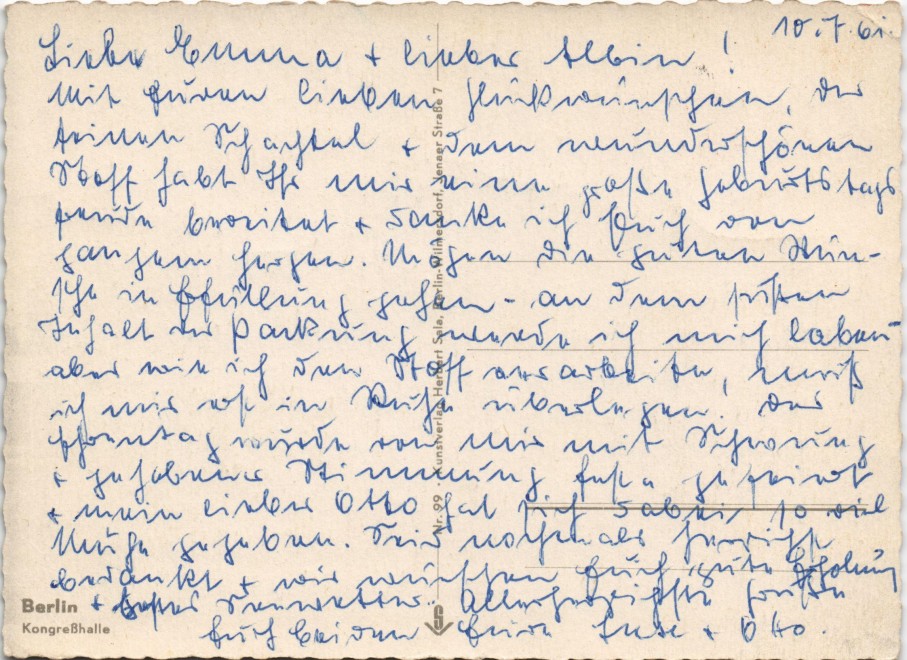 10.7.61.
Liebe Emma + lieber Albin!
Mit Euren lieben Glückwünschen, der
feinen Schachtel + dem wunderschönen
Stoff habt Ihr mir eine große Geburtstags
freude bereitet + danke ich Euch von
ganzem Herzen. Mögen die guten Wün-
sche in Erfüllung gehen - an dem süßen
Inhalt der Packung werde ich mich laben
aber wie ich den Stoff verarbeite, muß
ich mir erst in Ruhe überlegen. Der
wurde von mir mit Schwung
+ gehobener Stimmung gefeiert
+ mein lieber Otto hat sich dabei so viel
Mühe gegeben. Seid nochmals herzlich
bedankt + wir wünschen Euch gute Erholung
+ Allerherzlichste Grüße
Euch beiden Eure + Otto.
Berlin
Kongreßhalle
Nr. 99 Kunstverlag Herbert Sala, Berlin-Wilmersdorf, Jenaer Straße 7